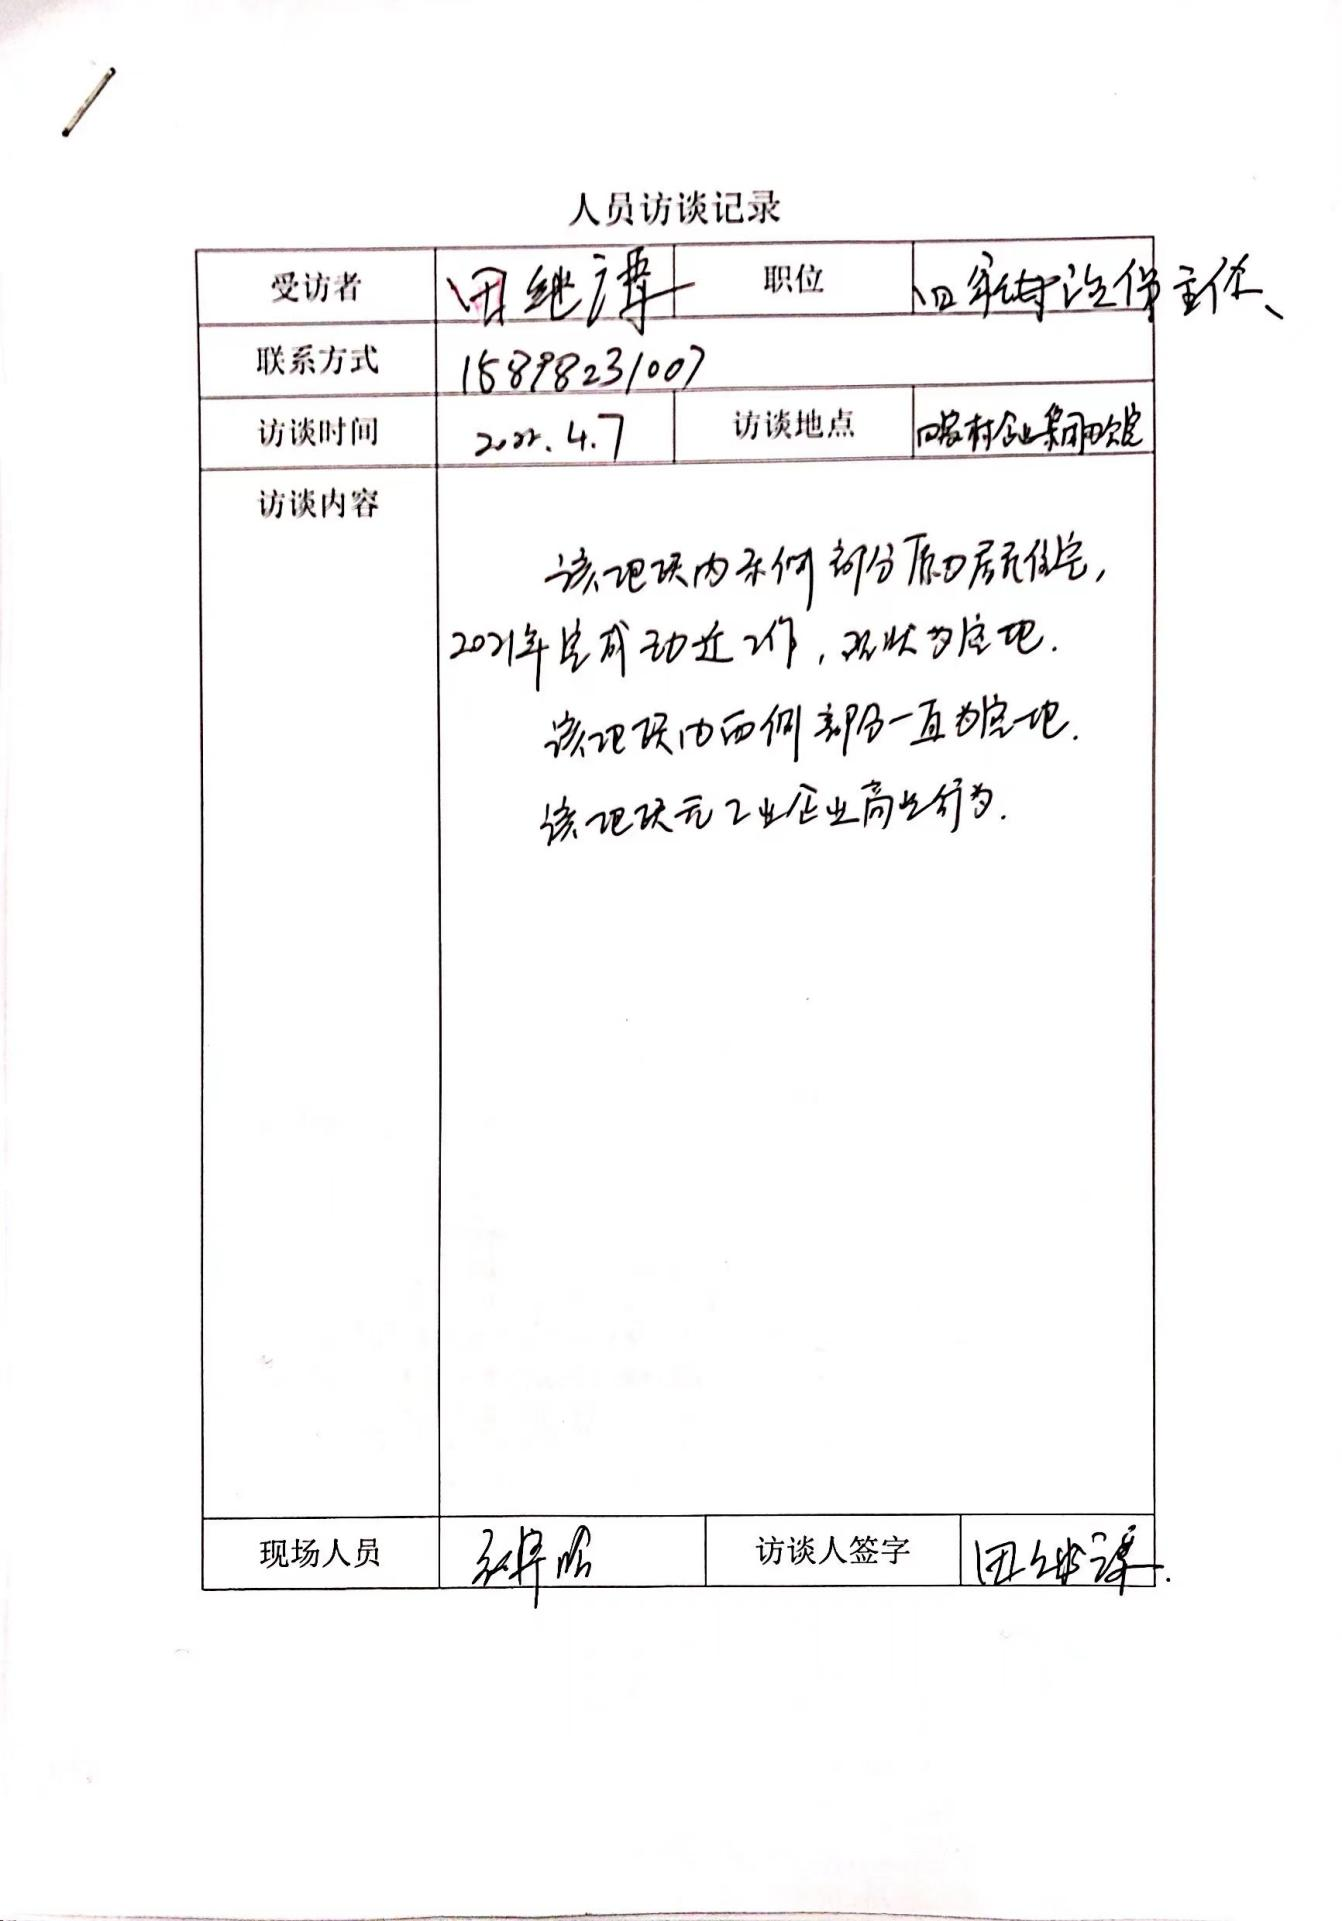 人员访谈记录
受访者 田继谭 职位 田家村治保主任、
联系方式 15898231007
访谈时间 2022.4.7 访谈地点 田家村企业集团办公室
访谈内容
该地块内东侧部分原为居民住宅,
2021年完成动迁工作, 现状为空地.
该地块内西侧部分一直为空地.
该地块无工业企业商业行为.
现场人员 访谈人签字 田继谭.